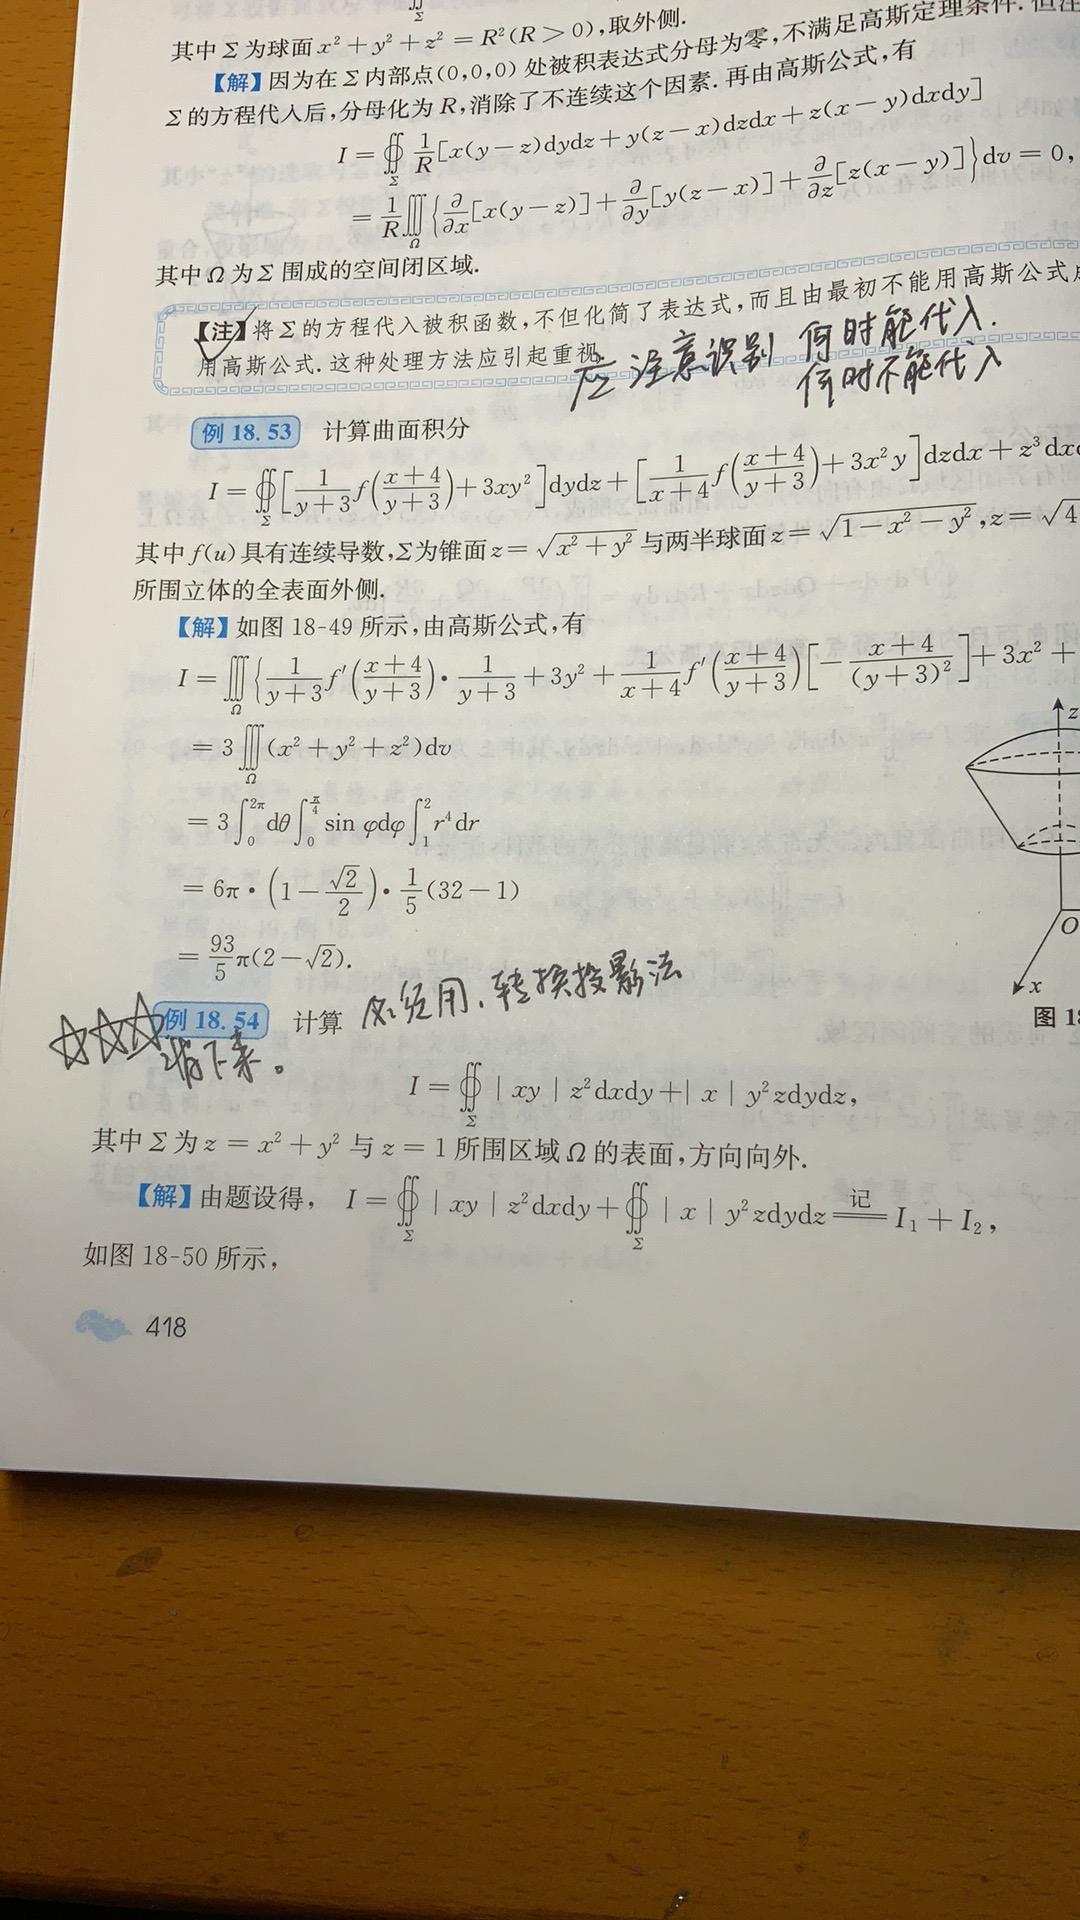 ∯
Σ
其中 Σ 为球面 x² + y² + z² = R² (R > 0), 取外侧.
【解】因为在 Σ 内部点(0,0,0) 处被积表达式分母为零, 不满足高斯定理条件. 但注
Σ 的方程代入后, 分母化为 R, 消除了不连续这个因素. 再由高斯公式, 有
I = ∯_Σ 1/R [x(y − z)dydz + y(z − x)dzdx + z(x − y)dxdy]
= 1/R ∭_Ω {∂/∂x [x(y − z)] + ∂/∂y [y(z − x)] + ∂/∂z [z(x − y)]} dv = 0,
其中 Ω 为 Σ 围成的空间闭区域.
【注】将 Σ 的方程代入被积函数, 不但化简了表达式, 而且由最初不能用高斯公式
用高斯公式. 这种处理方法应引起重视.
应注意识别 何时能代入.
何时不能代入
例 18.53 计算曲面积分
I = ∯_Σ [1/(y+3) f((x+4)/(y+3)) + 3xy²] dydz + [1/(x+4) f((x+4)/(y+3)) + 3x²y] dzdx + z³dx
其中 f(u) 具有连续导数, Σ 为锥面 z = √(x² + y²) 与两半球面 z = √(1 − x² − y²), z = √4
所围立体的全表面外侧.
【解】如图 18-49 所示, 由高斯公式, 有
I = ∭_Ω {1/(y+3) f′((x+4)/(y+3)) · 1/(y+3) + 3y² + 1/(x+4) f′((x+4)/(y+3)) [− (x+4)/(y+3)²] + 3x² +
= 3∭_Ω (x² + y² + z²)dv
= 3∫₀^{2π} dθ ∫₀^{π/4} sin φdφ ∫₁² r⁴ dr
= 6π · (1 − √2/2) · 1/5 (32 − 1)
= 93/5 π(2 − √2).
z
O
x
图 18
例 18.54 计算 必须用、转换投影法
背下来。
I = ∯_Σ | xy | z²dxdy + | x | y²zdydz,
其中 Σ 为 z = x² + y² 与 z = 1 所围区域 Ω 的表面, 方向向外.
【解】由题设得, I = ∯_Σ | xy | z²dxdy + ∯_Σ | x | y²zdydz 记== I₁ + I₂,
如图 18-50 所示,
418